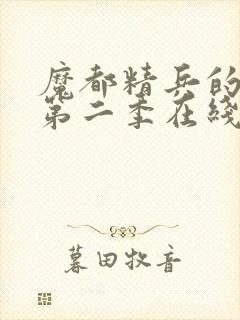 魔都精兵的
第二季在线
暮田牧音